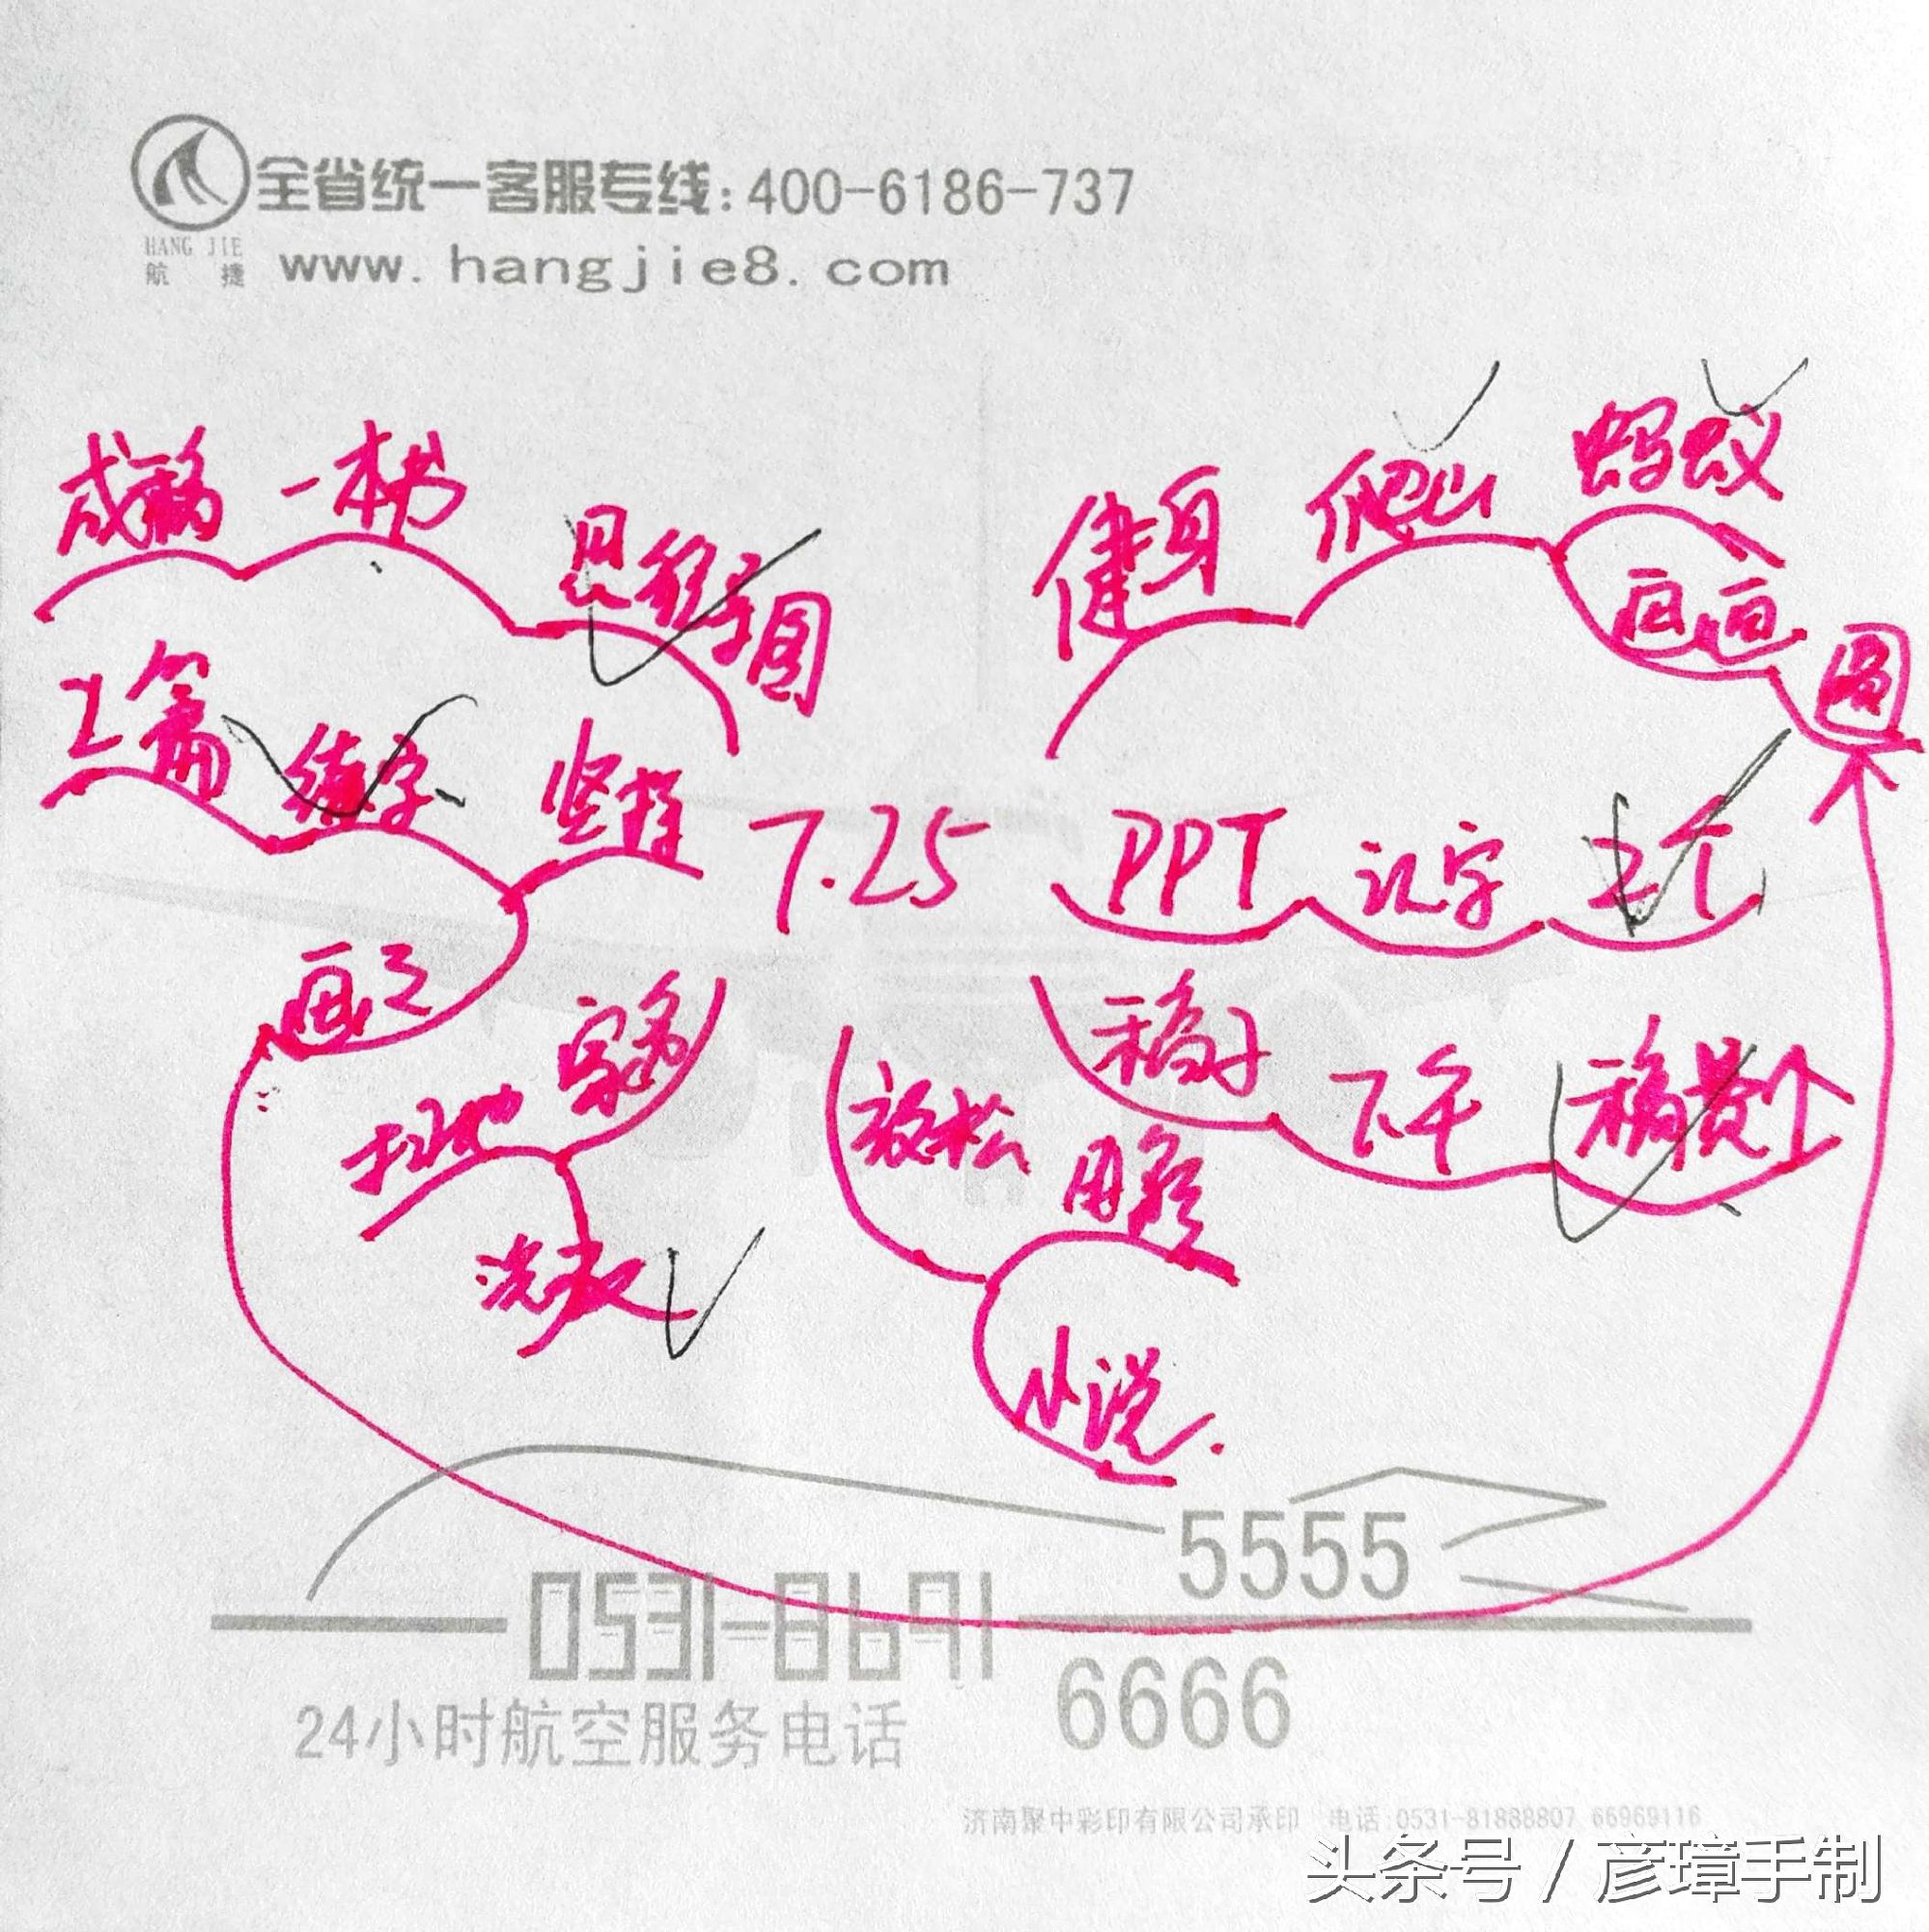 全省统一客服专线:400-6186-737
HANG JIE
航 捷
www.hangjie8.com
成稿 一本书 思维导图
2篇 练字 坚持
画之
7.25
健身 爬山 蚂蚁
画画 图
PPT 识字 2个
稿子 下午
家务
扫地
洗衣
放松
小说.
5555
0531-8691
6666
24小时航空服务电话
济南聚中彩印有限公司承印 电话:0531-81888807 66969116
头条号 / 彦璋手制